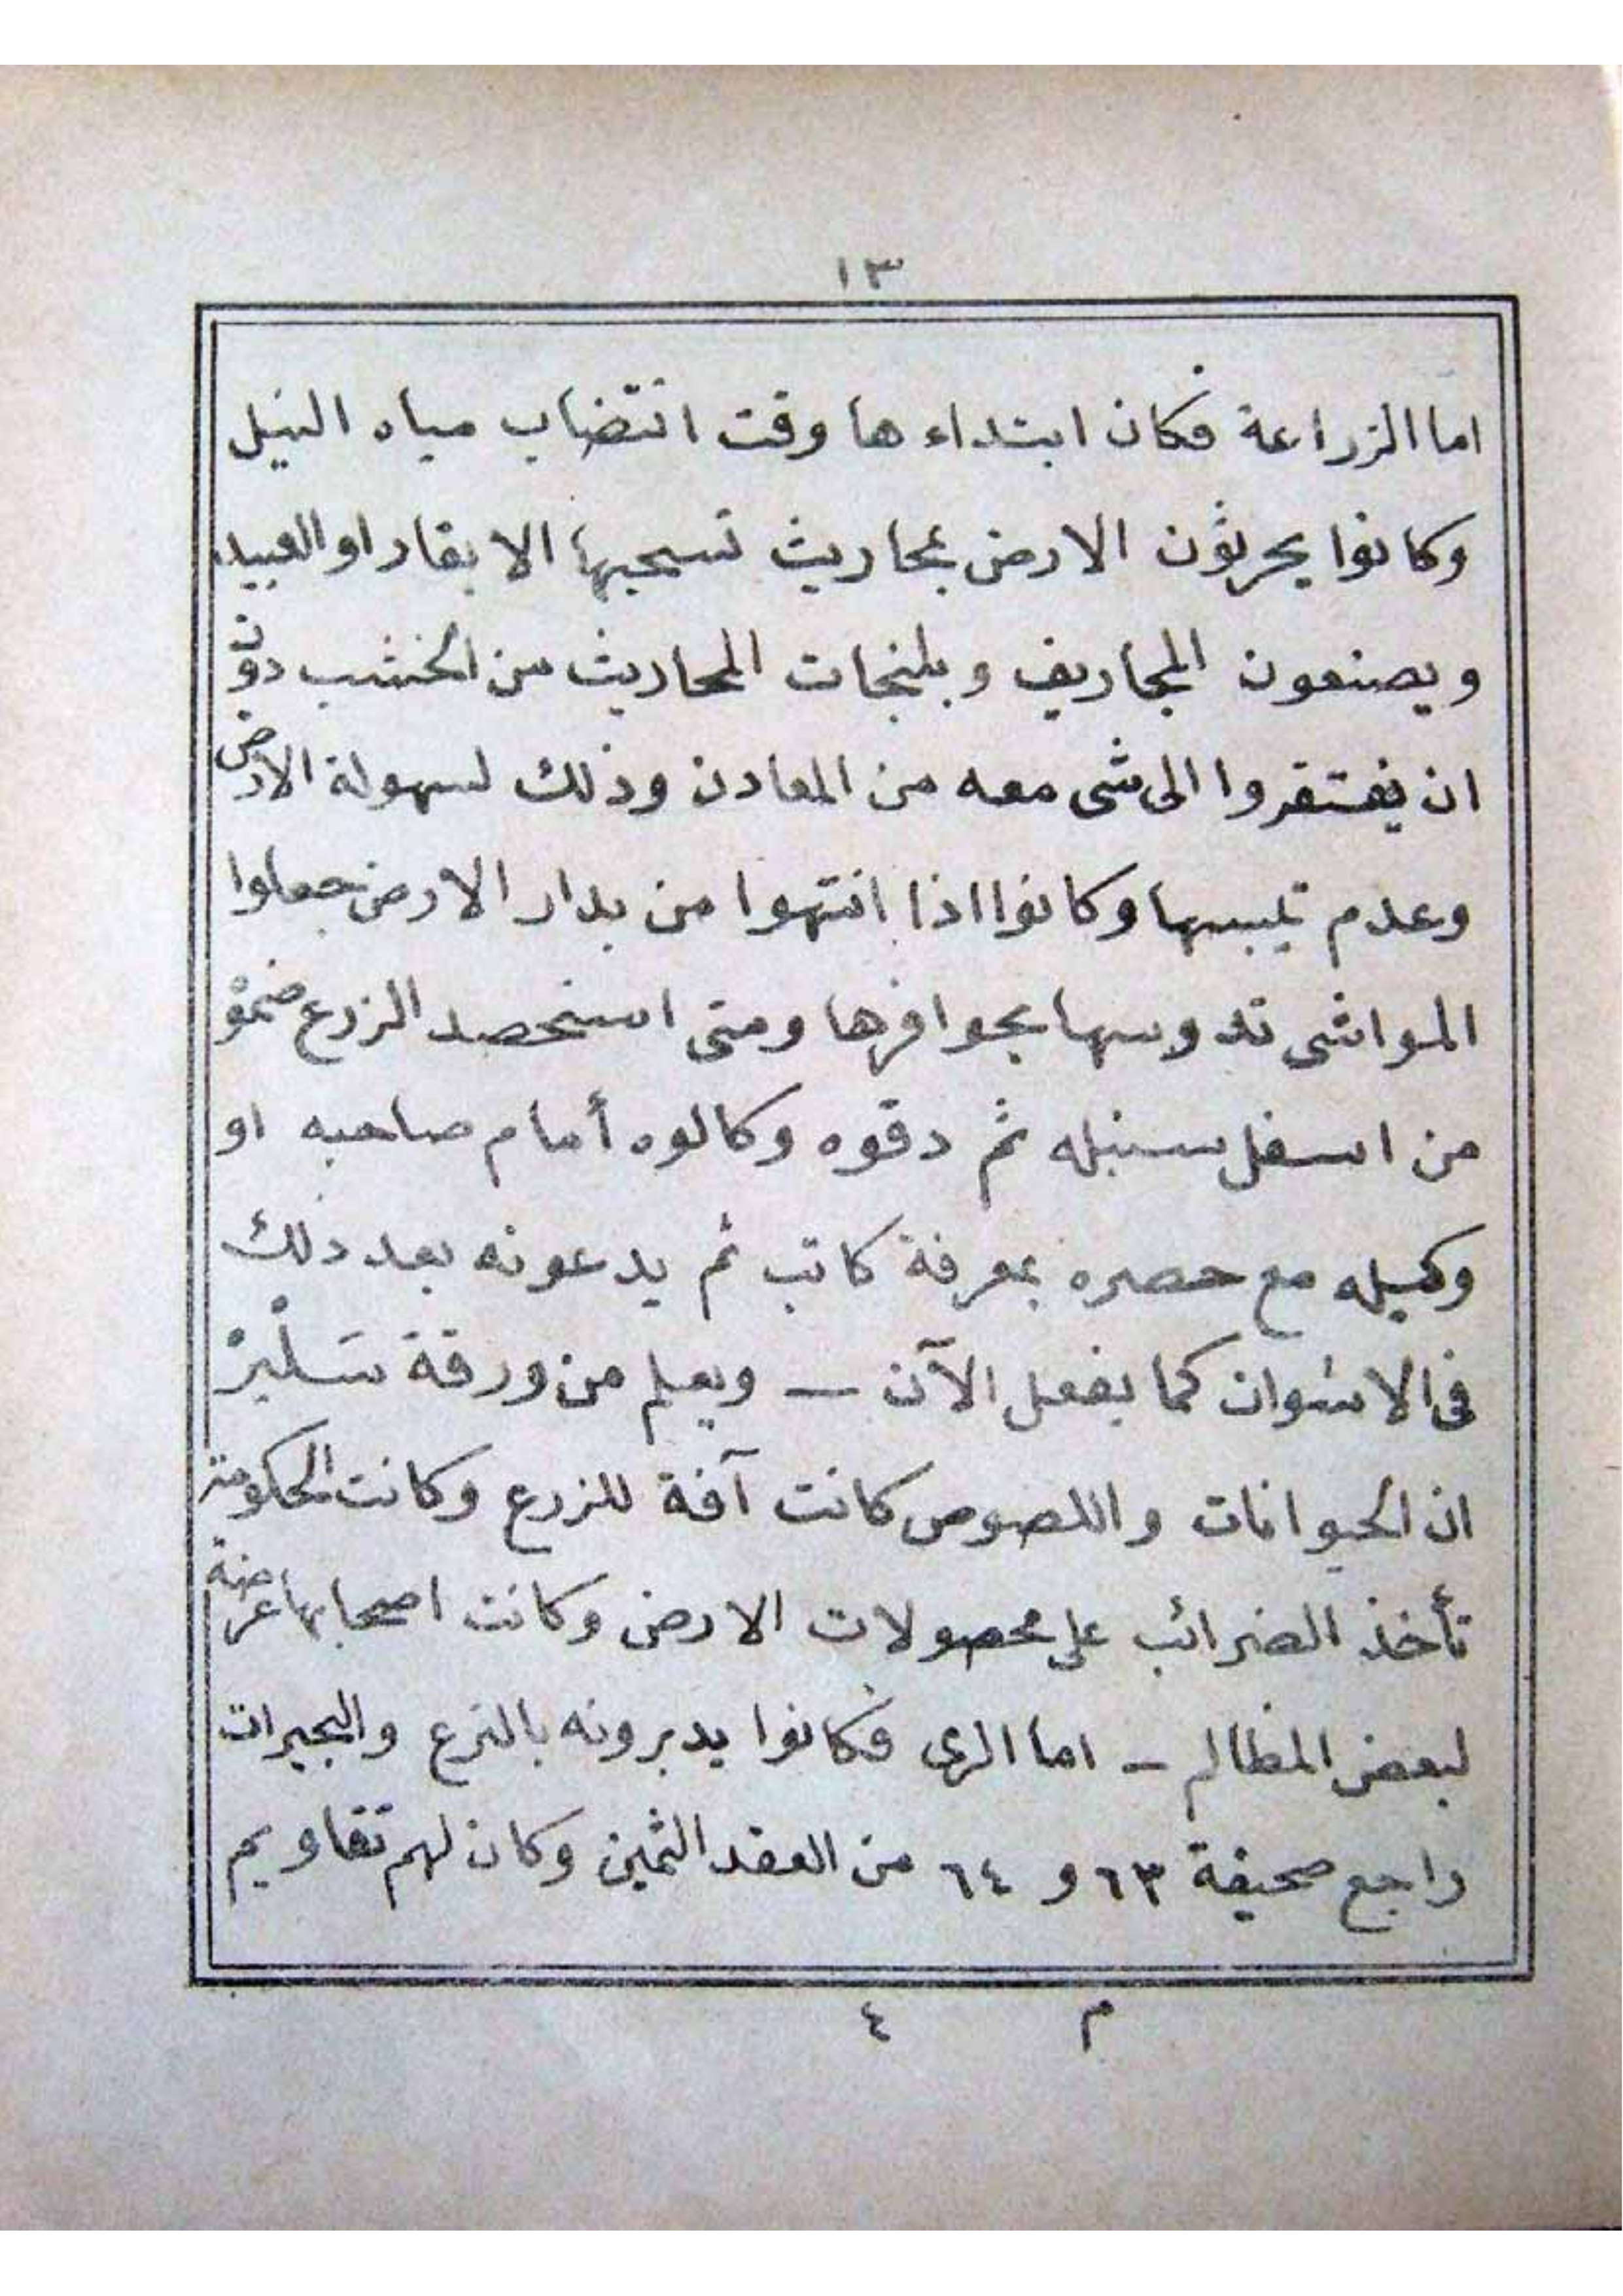 ١٣
اما الزراعة فكان ابتداء ها وقت انتضاب مياه النيل
وكانوا يحرثون الارض بمحاريث تسحبها الابقار او العبيد
ويصنعون المجاريف وبلنجات المحاريث من الخشب دون
ان يفتقروا الى شى معه من المعادن وذلك لسهولة الارض
وعدم تيبسها وكانوا اذا انتهوا من بدار الارض جعلوا
المواشى تدوسها بحوافرها ومتى استحصد الزرع ضموْ
من اسفل سنبله ثم دقوه وكالوه أمام صاحبه او
وكيله مع حصره بمعرفة كاتب ثم يدعونه بعد ذلك
فى الاشوان كما يفعل الآن — ويعلم من ورقة سَلْيرْ
ان الحيوانات واللصوص كانت آفة للزرع وكانت الحكومة
تأخذ الضرائب على محصولات الارض وكانت اصحابها عرضة
لبعض المظالم — اما الرى فكانوا يدبرونه بالترع والبحيرات
راجع صحيفة ٦٣ و ٦٤ من العقد الثمين وكان لهم تقاويم
م ٤